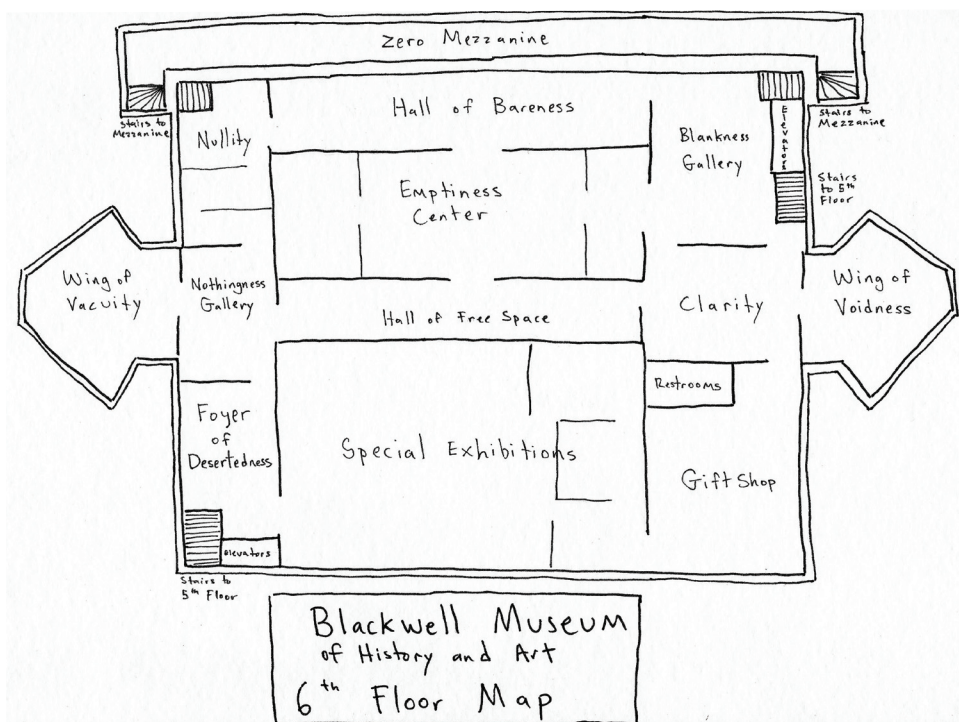 Zero Mezzanine
Stairs to
Mezzanine
Nullity
Hall of Bareness
Blankness
Gallery
Elevators
Stairs to
Mezzanine
Stairs
to 5th
Floor
Emptiness
Center
Wing of
Vacuity
Nothingness
Gallery
Hall of Free Space
Clarity
Wing of
Voidness
Restrooms
Foyer
of
Desertedness
Special Exhibitions
Gift Shop
elevators
Stairs to
5th Floor
Blackwell Museum
of History and Art
6th Floor Map